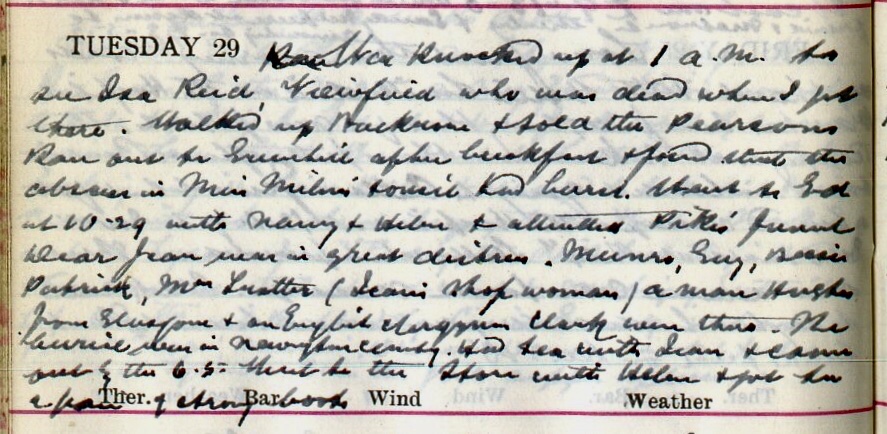 TUESDAY 29 Was Knocked up at 1 a.m. to
see Isa Reid, Viewfield who was dead when I got
there. Walked up & told the Pearsons
Ran out to Greenhill after breakfast & found that the
abscess in Miss Milne's tonsil had burst. Went to Ed
at 10-29 with Nancy & Helen & attended funeral
Dear Jean was in great distress. Munro, Guy, Bessie
Patrick, Mrs (Jean's shop woman) a man Hughes
from Glasgow & an English clergyman Clark were there. The
was in . Had tea with Jean & came
out by the 6-5. Went to the Store with Helen & got her
a pair of strong boots
Ther. Bar. Wind Weather